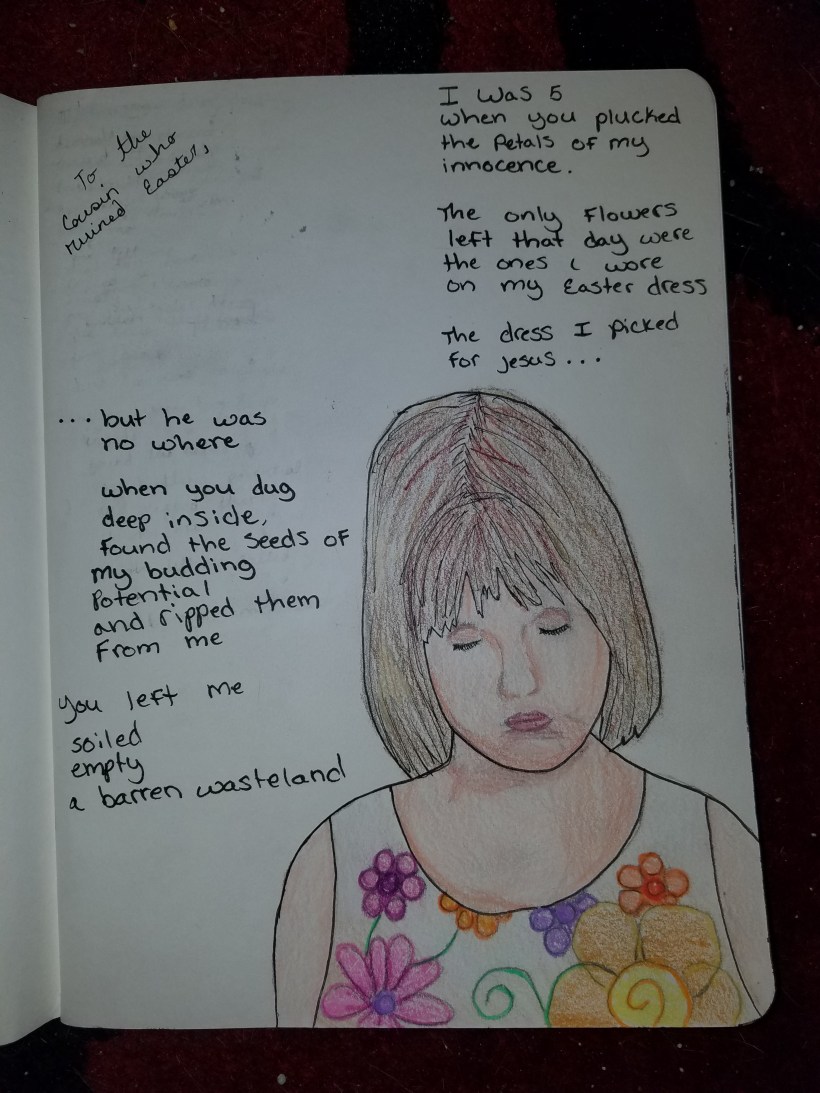 To the
cousin who
ruined Easter,
I was 5
when you plucked
the petals of my
innocence.
The only Flowers
left that day were
the ones i wore
on my Easter dress
The dress I picked
for Jesus...
...but he was
no where
when you dug
deep inside,
found the seeds of
my budding
Potential
and ripped them
From me
You left me
soiled
empty
a barren wasteland